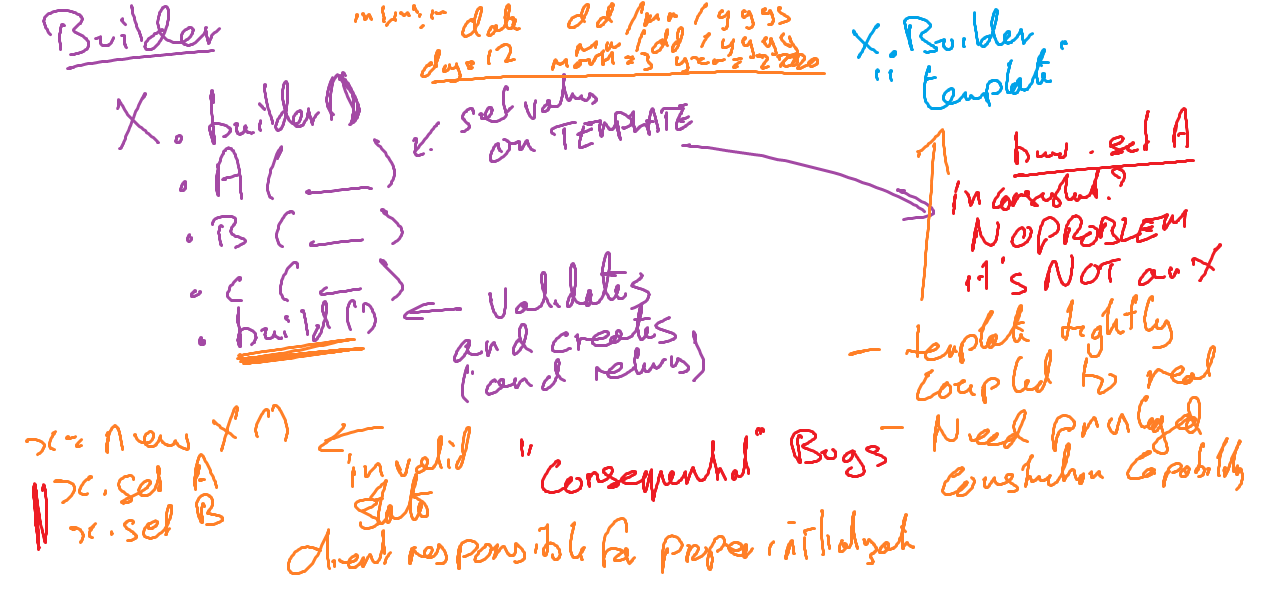 Builder
int, int, int date dd/mm/yyyy
mm/dd/yyyy
day=12 month=3 year=2020
X.builder()
.A(___)
.B(___)
.C(___)
.build()
set values
on TEMPLATE
validates
and creates
(and returns)
X.Builder
"template"
.set A
Inconsistent?
NO PROBLEM
it's NOT an X
- template tightly
coupled to real
- Need privileged
construction capability
x= new X()
x.set A
x.set B
invalid
state
"Consequential" Bugs
client responsible for proper initializat